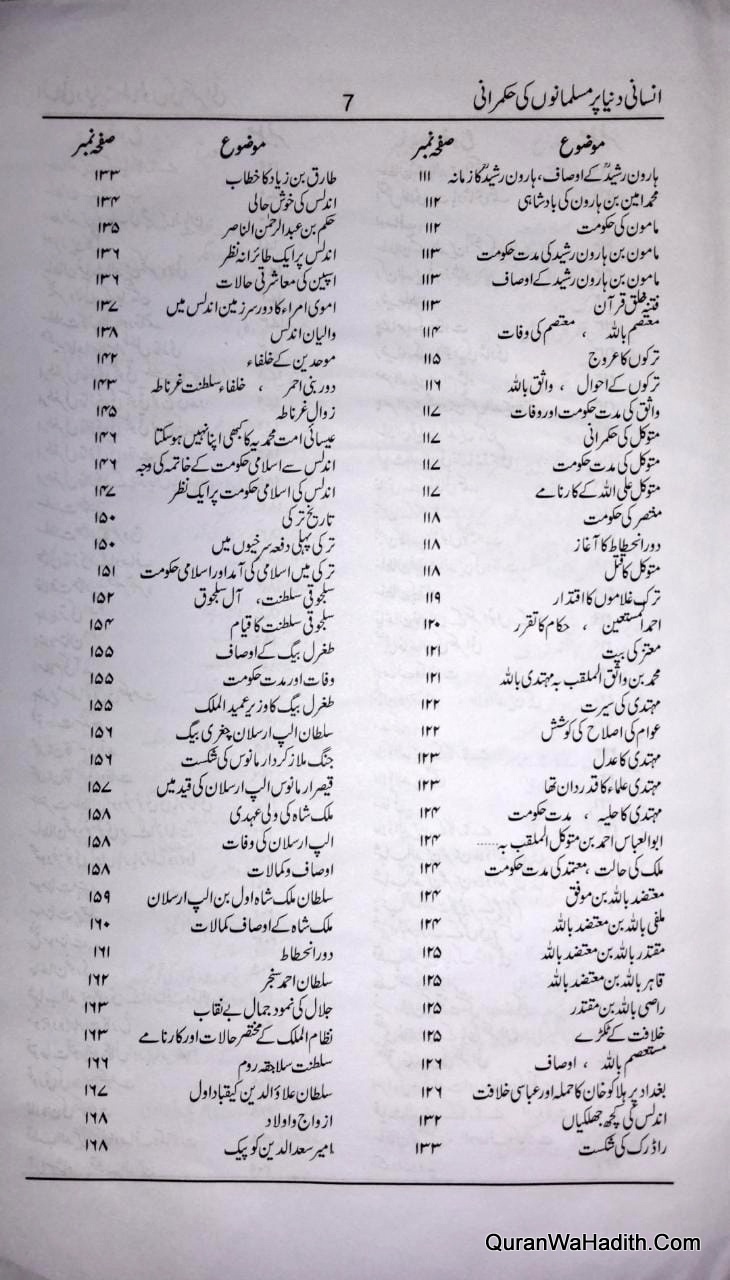 انسانی دنیا پر مسلمانوں کی حکمرانی 7
موضوع صفحہ نمبر
ہارون رشیدؒ کے اوصاف، ہارون رشیدؒ کا زمانہ ۱۱۱
محمد امین بن ہارون کی بادشاہی ۱۱۲
مامون کی حکومت ۱۱۲
مامون بن ہارون رشید کی مدت حکومت ۱۱۳
مامون بن ہارون رشید کے اوصاف ۱۱۳
فتنہ خلق قرآن ۱۱۳
معتصم باللہ ، معتصم کی وفات ۱۱۴
ترکوں کا عروج ۱۱۵
ترکوں کے احوال ، واثق باللہ ۱۱۶
واثق کی مدت حکومت اور وفات ۱۱۷
متوکل کی حکمرانی ۱۱۷
متوکل کی مدت حکومت ۱۱۷
متوکل علی اللہ کے کارنامے ۱۱۷
منتصر کی حکومت ۱۱۸
دور انحطاط کا آغاز ۱۱۸
متوکل کا قتل ۱۱۸
ترک غلاموں کا اقتدار ۱۱۹
احمد المستعین ، حکام کا تقرر ۱۲۰
معتز کی بیت ۱۲۱
محمد بن واثق الملقب بہ مہتدی باللہ ۱۲۱
مہتدی کی سیرت ۱۲۲
عوام کی اصلاح کی کوشش ۱۲۲
مہتدی کا عدل ۱۲۳
مہتدی علماء کا قدردان تھا ۱۲۳
مہتدی کا حلیہ ، مدت حکومت ۱۲۴
ابوالعباس احمد بن متوکل الملقب بہ..... ۱۲۴
ملک کی حالت ، معتمد کی مدت حکومت ۱۲۴
معتضد باللہ بن موفق ۱۲۴
ملفی باللہ بن معتضد باللہ ۱۲۴
مقتدر باللہ بن معتضد باللہ ۱۲۵
قاہر باللہ بن معتضد باللہ ۱۲۵
راصی باللہ بن مقتدر ۱۲۵
خلافت کے ٹکڑے ۱۲۵
مستعصم باللہ ، اوصاف ۱۲۶
بغداد پر ہلاکو خان کا حملہ اور عباسی خلافت ۱۲۶
اندلس کی کچھ جھلکیاں ۱۳۲
راڈرک کی شکست ۱۳۳
موضوع صفحہ نمبر
طارق بن زیاد کا خطاب ۱۳۳
اندلس کی خوش حالی ۱۳۴
حکم بن عبدالرحمٰن الناصر ۱۳۵
اندلس پر ایک طائرانہ نظر ۱۳۶
اسپین کی معاشرتی حالات ۱۳۶
اموی امراء کا دور سرزمین اندلس میں ۱۳۷
والیان اندلس ۱۳۸
موحدین کے خلفاء ۱۴۲
دور بنی احمر ، خلفاء سلطنت غرناطہ ۱۴۳
زوال غرناطہ ۱۴۵
عیسائی امت محمدیہ کا کبھی اپنا نہیں ہو سکتا ۱۴۶
اندلس سے اسلامی حکومت کے خاتمہ کی وجہ ۱۴۶
اندلس کی اسلامی حکومت پر ایک نظر ۱۴۷
تاریخ ترکی ۱۵۰
ترکی پہلی دفعہ سرخیوں میں ۱۵۰
ترکی میں اسلامی کی آمد اور اسلامی حکومت ۱۵۱
سلجوقی سلطنت، آل سلجوق ۱۵۲
سلجوقی سلطنت کا قیام ۱۵۴
طغرل بیگ کے اوصاف ۱۵۵
وفات اور مدت حکومت ۱۵۵
طغرل بیگ کا وزیر عمید الملک ۱۵۵
سلطان الپ ارسلان چغری بیگ ۱۵۶
جنگ ملازکرد ارمانوس کی شکست ۱۵۶
قیصر ارمانوس الپ ارسلان کی قید میں ۱۵۷
ملک شاہ کی ولی عہدی ۱۵۸
الپ ارسلان کی وفات ۱۵۸
اوصاف و کمالات ۱۵۸
سلطان ملک شاہ اول بن الپ ارسلان ۱۵۹
ملک شاہ کے اوصاف کمالات ۱۶۰
دور انحطاط ۱۶۱
سلطان احمد سنجر ۱۶۲
جلال کی نمود جمال بے نقاب ۱۶۳
نظام الملک کے مختصر حالات اور کارنامے ۱۶۳
سلطنت سلاجقہ روم ۱۶۶
سلطان علاؤالدین کیقباد اول ۱۶۷
ازواج و اولاد ۱۶۸
امیر سعد الدین کوپیک ۱۶۸
QuranWaHadith.Com